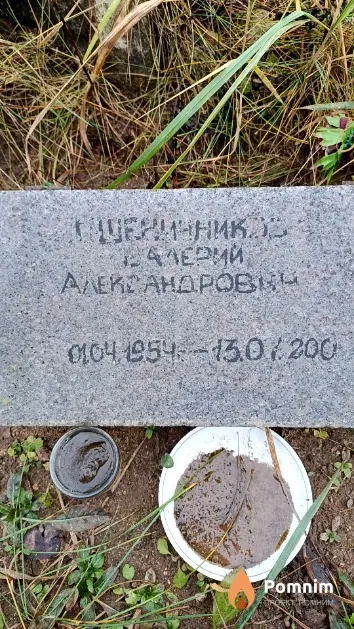 ПШЕНИЧНИКОВ
ВАЛЕРИЙ
АЛЕКСАНДРОВИЧ
01.04.1954 —
Pomnim
ПРОЕКТ "ПОМНИМ"